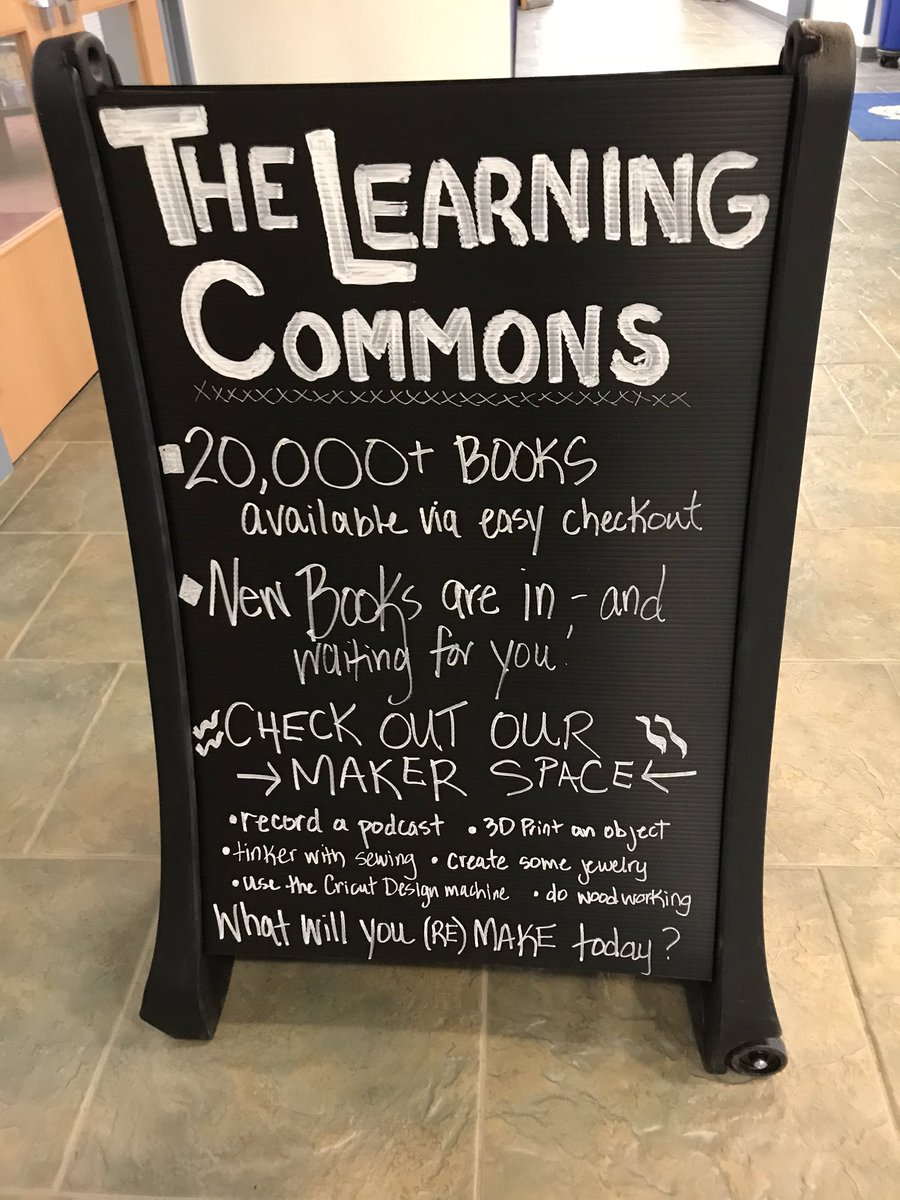 THE LEARNING
COMMONS
20,000+ BOOKS
available via easy checkout
New Books are in - and
waiting for you!
CHECK OUT OUR
→ MAKER SPACE ←
• record a podcast • 3D Print an object
• tinker with sewing • create some jewelry
• use the Cricut Design machine • do woodworking
What will you (RE) MAKE today?